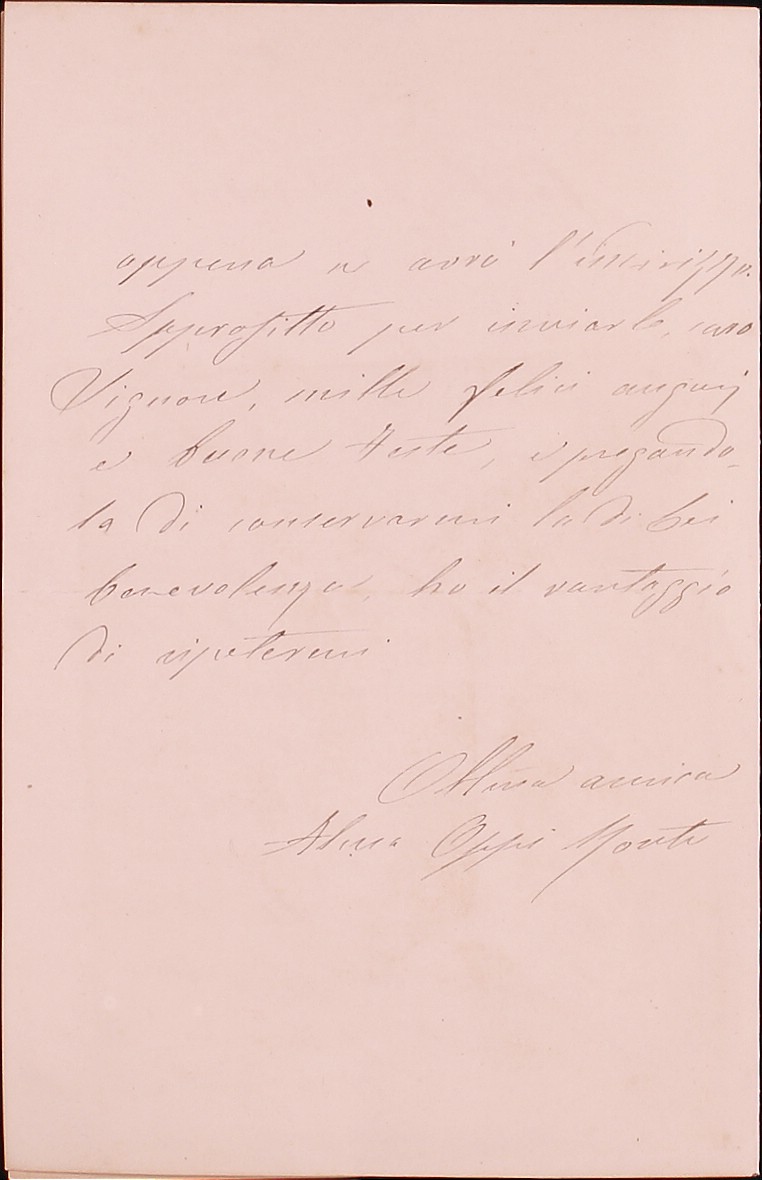 appena n avrò l'indirizzo.
Approfitto per inviarle, caro
Signore, mille felici augurj
e buone Feste, e pregando-
la di conservarmi la di Lei
benevolenza, ho il vantaggio
di ripetermi
amica
Oppi Monti